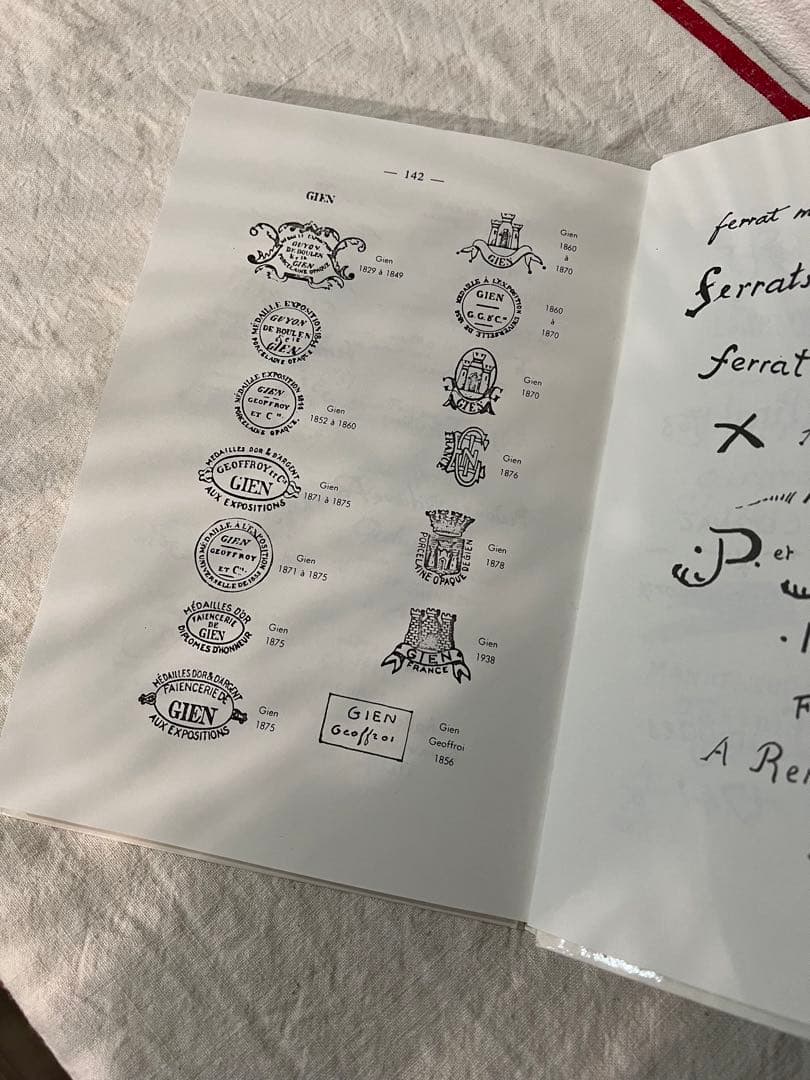 — 142 —
GIEN
GUYON
DE BOULEN
& Cie
GIEN
PORCELAINE OPAQUE
Gien
1829 à 1849
MÉDAILLE EXPOSITION 1844
GUYON
DE BOULEN
& Cie
GIEN
PORCELAINE OPAQUE
MÉDAILLE EXPOSITION 1844
GIEN
GEOFFROY
ET Cie
PORCELAINE OPAQUE
Gien
1852 à 1860
MÉDAILLES D'OR & D'ARGENT
GEOFFROY et Cie
GIEN
AUX EXPOSITIONS
Gien
1871 à 1875
MÉDAILLE À L'EXPOSITION
GIEN
GEOFFROY
ET Cie
UNIVERSELLE DE 1855
Gien
1871 à 1875
MÉDAILLES D'OR
FAIENCERIE
DE
GIEN
DIPLOMES D'HONNEUR
Gien
1875
MÉDAILLES D'OR & D'ARGENT
FAIENCERIE DE
GIEN
AUX EXPOSITIONS
Gien
1875
GIEN
Gien
1860
à
1870
MÉDAILLE À L'EXPOSITION
GIEN
G. G. & Cie
UNIVERSELLE DE 1855
1860
à
1870
GIEN
Gien
1870
FRANCE
GIEN
Gien
1876
PORCELAINE OPAQUE DE GIEN
Gien
1878
GIEN
FRANCE
Gien
1938
GIEN
Geoffroi
Gien
Geoffroi
1856
ferrat
ferrats
ferrat
X
P. et
A